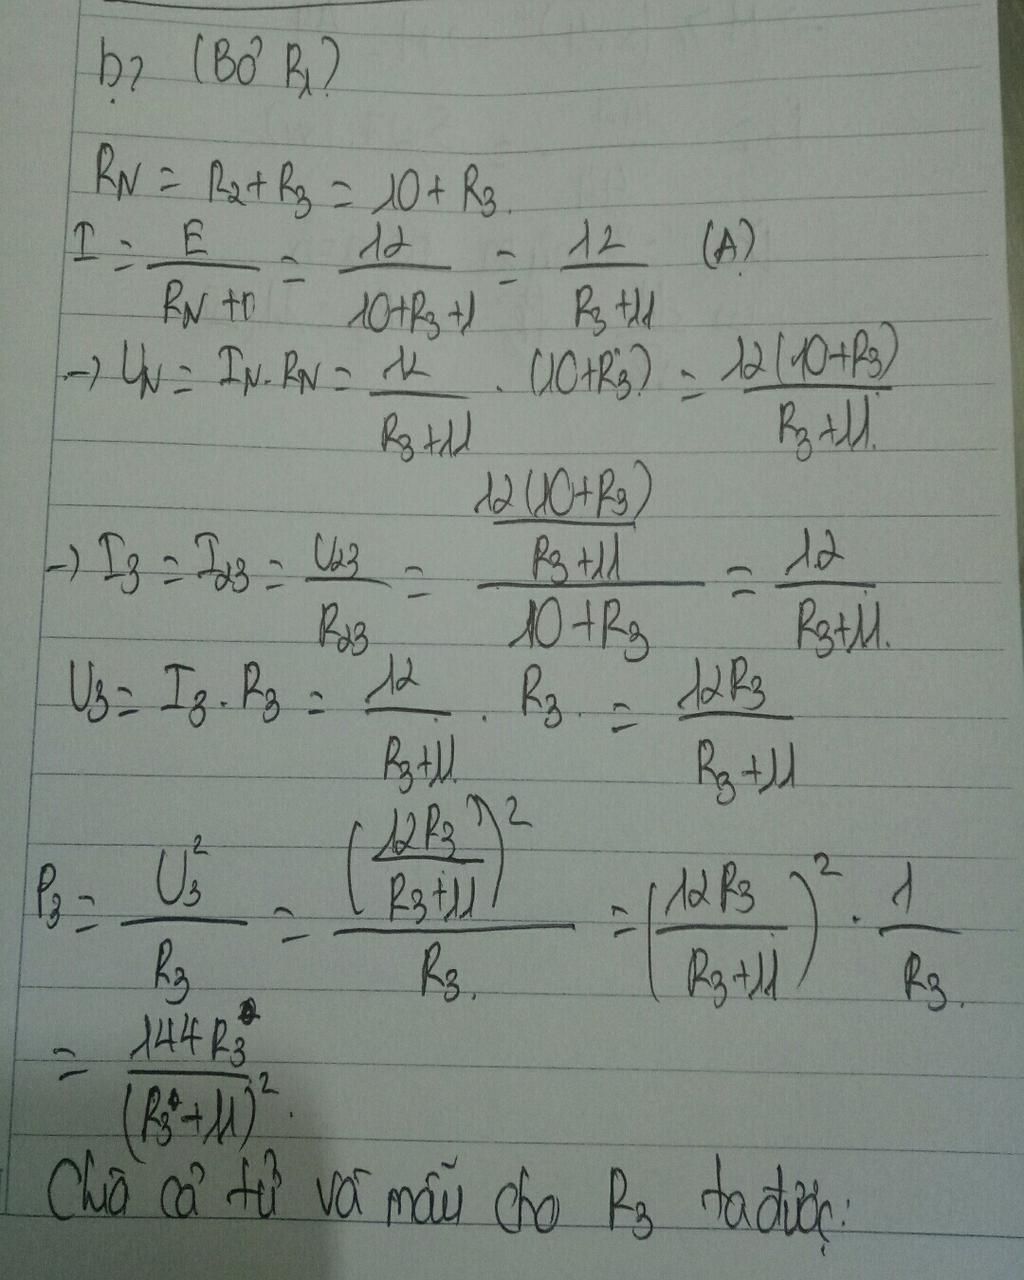 b, (Bỏ R₁)
R_N = R₂ + R₃ = 10 + R₃.
I = E / (R_N + r) = 12 / (10 + R₃ + 1) = 12 / (R₃ + 11) (A)
→ U_N = I_N . R_N = 12 / (R₃ + 11) . (10 + R₃) = 12(10 + R₃) / (R₃ + 11).
→ I₃ = I₂₃ = U₂₃ / R₂₃ = (12(10 + R₃) / (R₃ + 11)) / (10 + R₃) = 12 / (R₃ + 11).
U₃ = I₃ . R₃ = 12 / (R₃ + 11) . R₃ = 12R₃ / (R₃ + 11)
P₃ = U₃² / R₃ = (12R₃ / (R₃ + 11))² / R₃ = (12R₃ / (R₃ + 11))² . 1 / R₃.
= 144R₃ / (R₃ + 11)².
Chia cả tử và mẫu cho R₃ ta được: